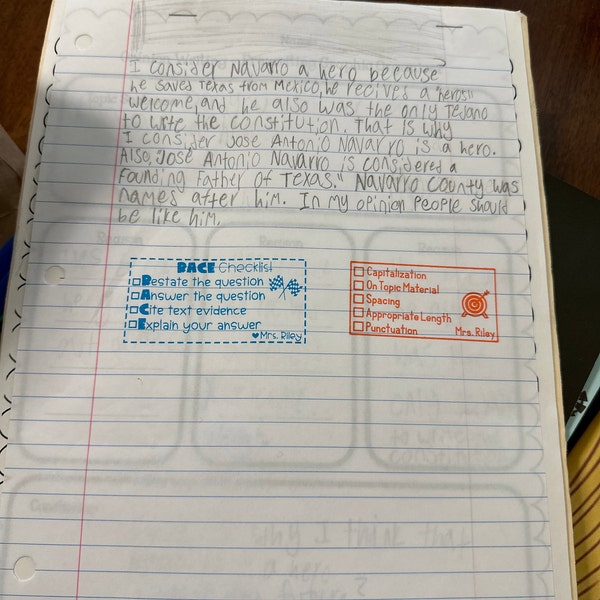 I consider Navarro a hero because
he saved Texas from Mexico, he recives a "heros"
welcome, and he also was the only Tejano
to write the constitution. That is why
I consider José Antonio Navarro is a hero.
Also, José Antonio Navarro is considered a
Founding Father of Texas." Navarro County was
names after him. In my opinion people should
be like him.
RACE Checklist
Restate the question
Answer the question
Cite text evidence
Explain your answer
Mrs. Riley
Capitalization
On Topic Material
Spacing
Appropriate Length
Punctuation
Mrs. Riley
why I think that
a hero